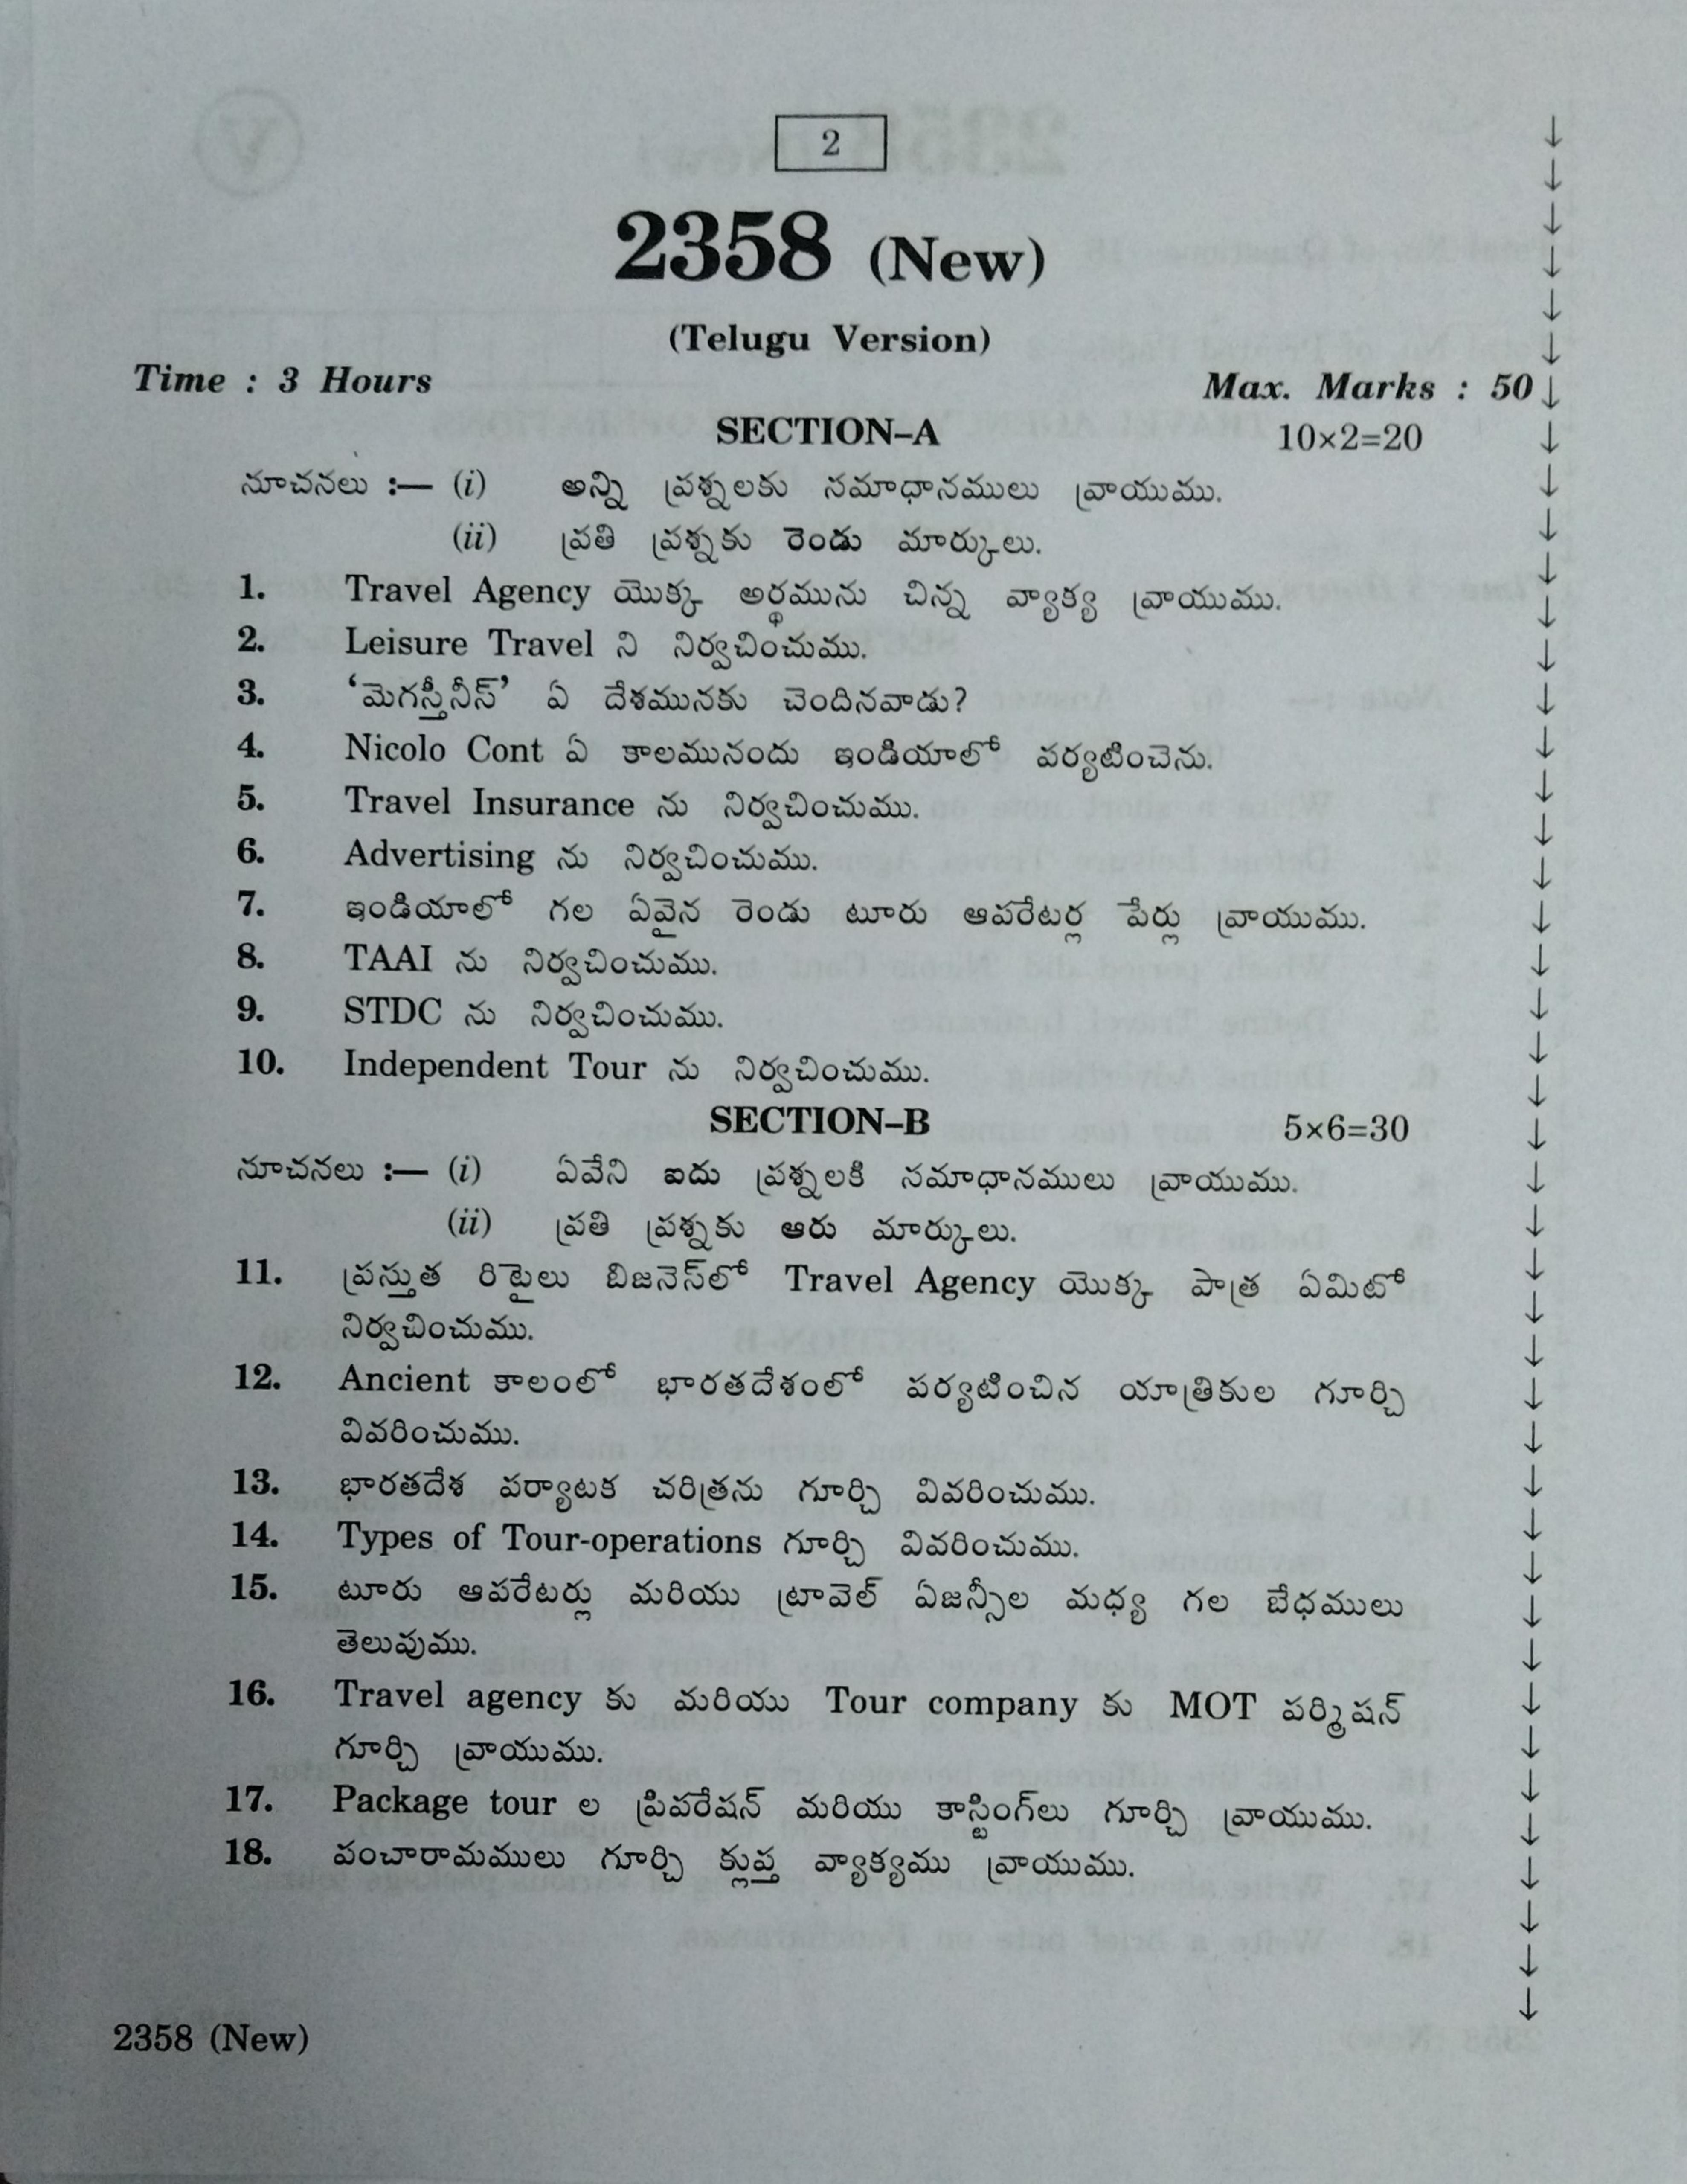 2
2358 (New)
(Telugu Version)
Time : 3 Hours Max. Marks : 50
SECTION–A 10×2=20
సూచనలు :— (i) అన్ని ప్రశ్నలకు సమాధానములు వ్రాయుము.
(ii) ప్రతి ప్రశ్నకు రెండు మార్కులు.
1. Travel Agency యొక్క అర్థమును చిన్న వ్యాక్య వ్రాయుము.
2. Leisure Travel ని నిర్వచించుము.
3. ‘మెగస్తీనీస్’ ఏ దేశమునకు చెందినవాడు?
4. Nicolo Cont ఏ కాలమునందు ఇండియాలో పర్యటించెను.
5. Travel Insurance ను నిర్వచించుము.
6. Advertising ను నిర్వచించుము.
7. ఇండియాలో గల ఏవైన రెండు టూరు ఆపరేటర్ల పేర్లు వ్రాయుము.
8. TAAI ను నిర్వచించుము.
9. STDC ను నిర్వచించుము.
10. Independent Tour ను నిర్వచించుము.
SECTION–B 5×6=30
సూచనలు :— (i) ఏవేని ఐదు ప్రశ్నలకి సమాధానములు వ్రాయుము.
(ii) ప్రతి ప్రశ్నకు ఆరు మార్కులు.
11. ప్రస్తుత రిటైలు బిజనెస్‌లో Travel Agency యొక్క పాత్ర ఏమిటో
నిర్వచించుము.
12. Ancient కాలంలో భారతదేశంలో పర్యటించిన యాత్రికుల గూర్చి
వివరించుము.
13. భారతదేశ పర్యాటక చరిత్రను గూర్చి వివరించుము.
14. Types of Tour-operations గూర్చి వివరించుము.
15. టూరు ఆపరేటర్లు మరియు ట్రావెల్ ఏజన్సీల మధ్య గల బేధములు
తెలుపుము.
16. Travel agency కు మరియు Tour company కు MOT పర్మిషన్
గూర్చి వ్రాయుము.
17. Package tour ల ప్రిపరేషన్ మరియు కాస్టింగ్‌లు గూర్చి వ్రాయుము.
18. పంచారామములు గూర్చి క్లుప్త వ్యాక్యము వ్రాయుము.
2358 (New)